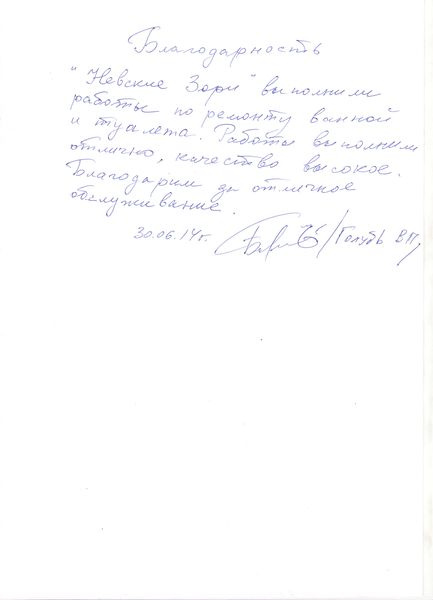 Благодарность
"Невские Зори" выполнили
работы по ремонту ванной
и туалета. Работы выполнили
отлично, качество высокое.
Благодарим за отличное
обслуживание.
30.06.14г. /Голубь В.П./